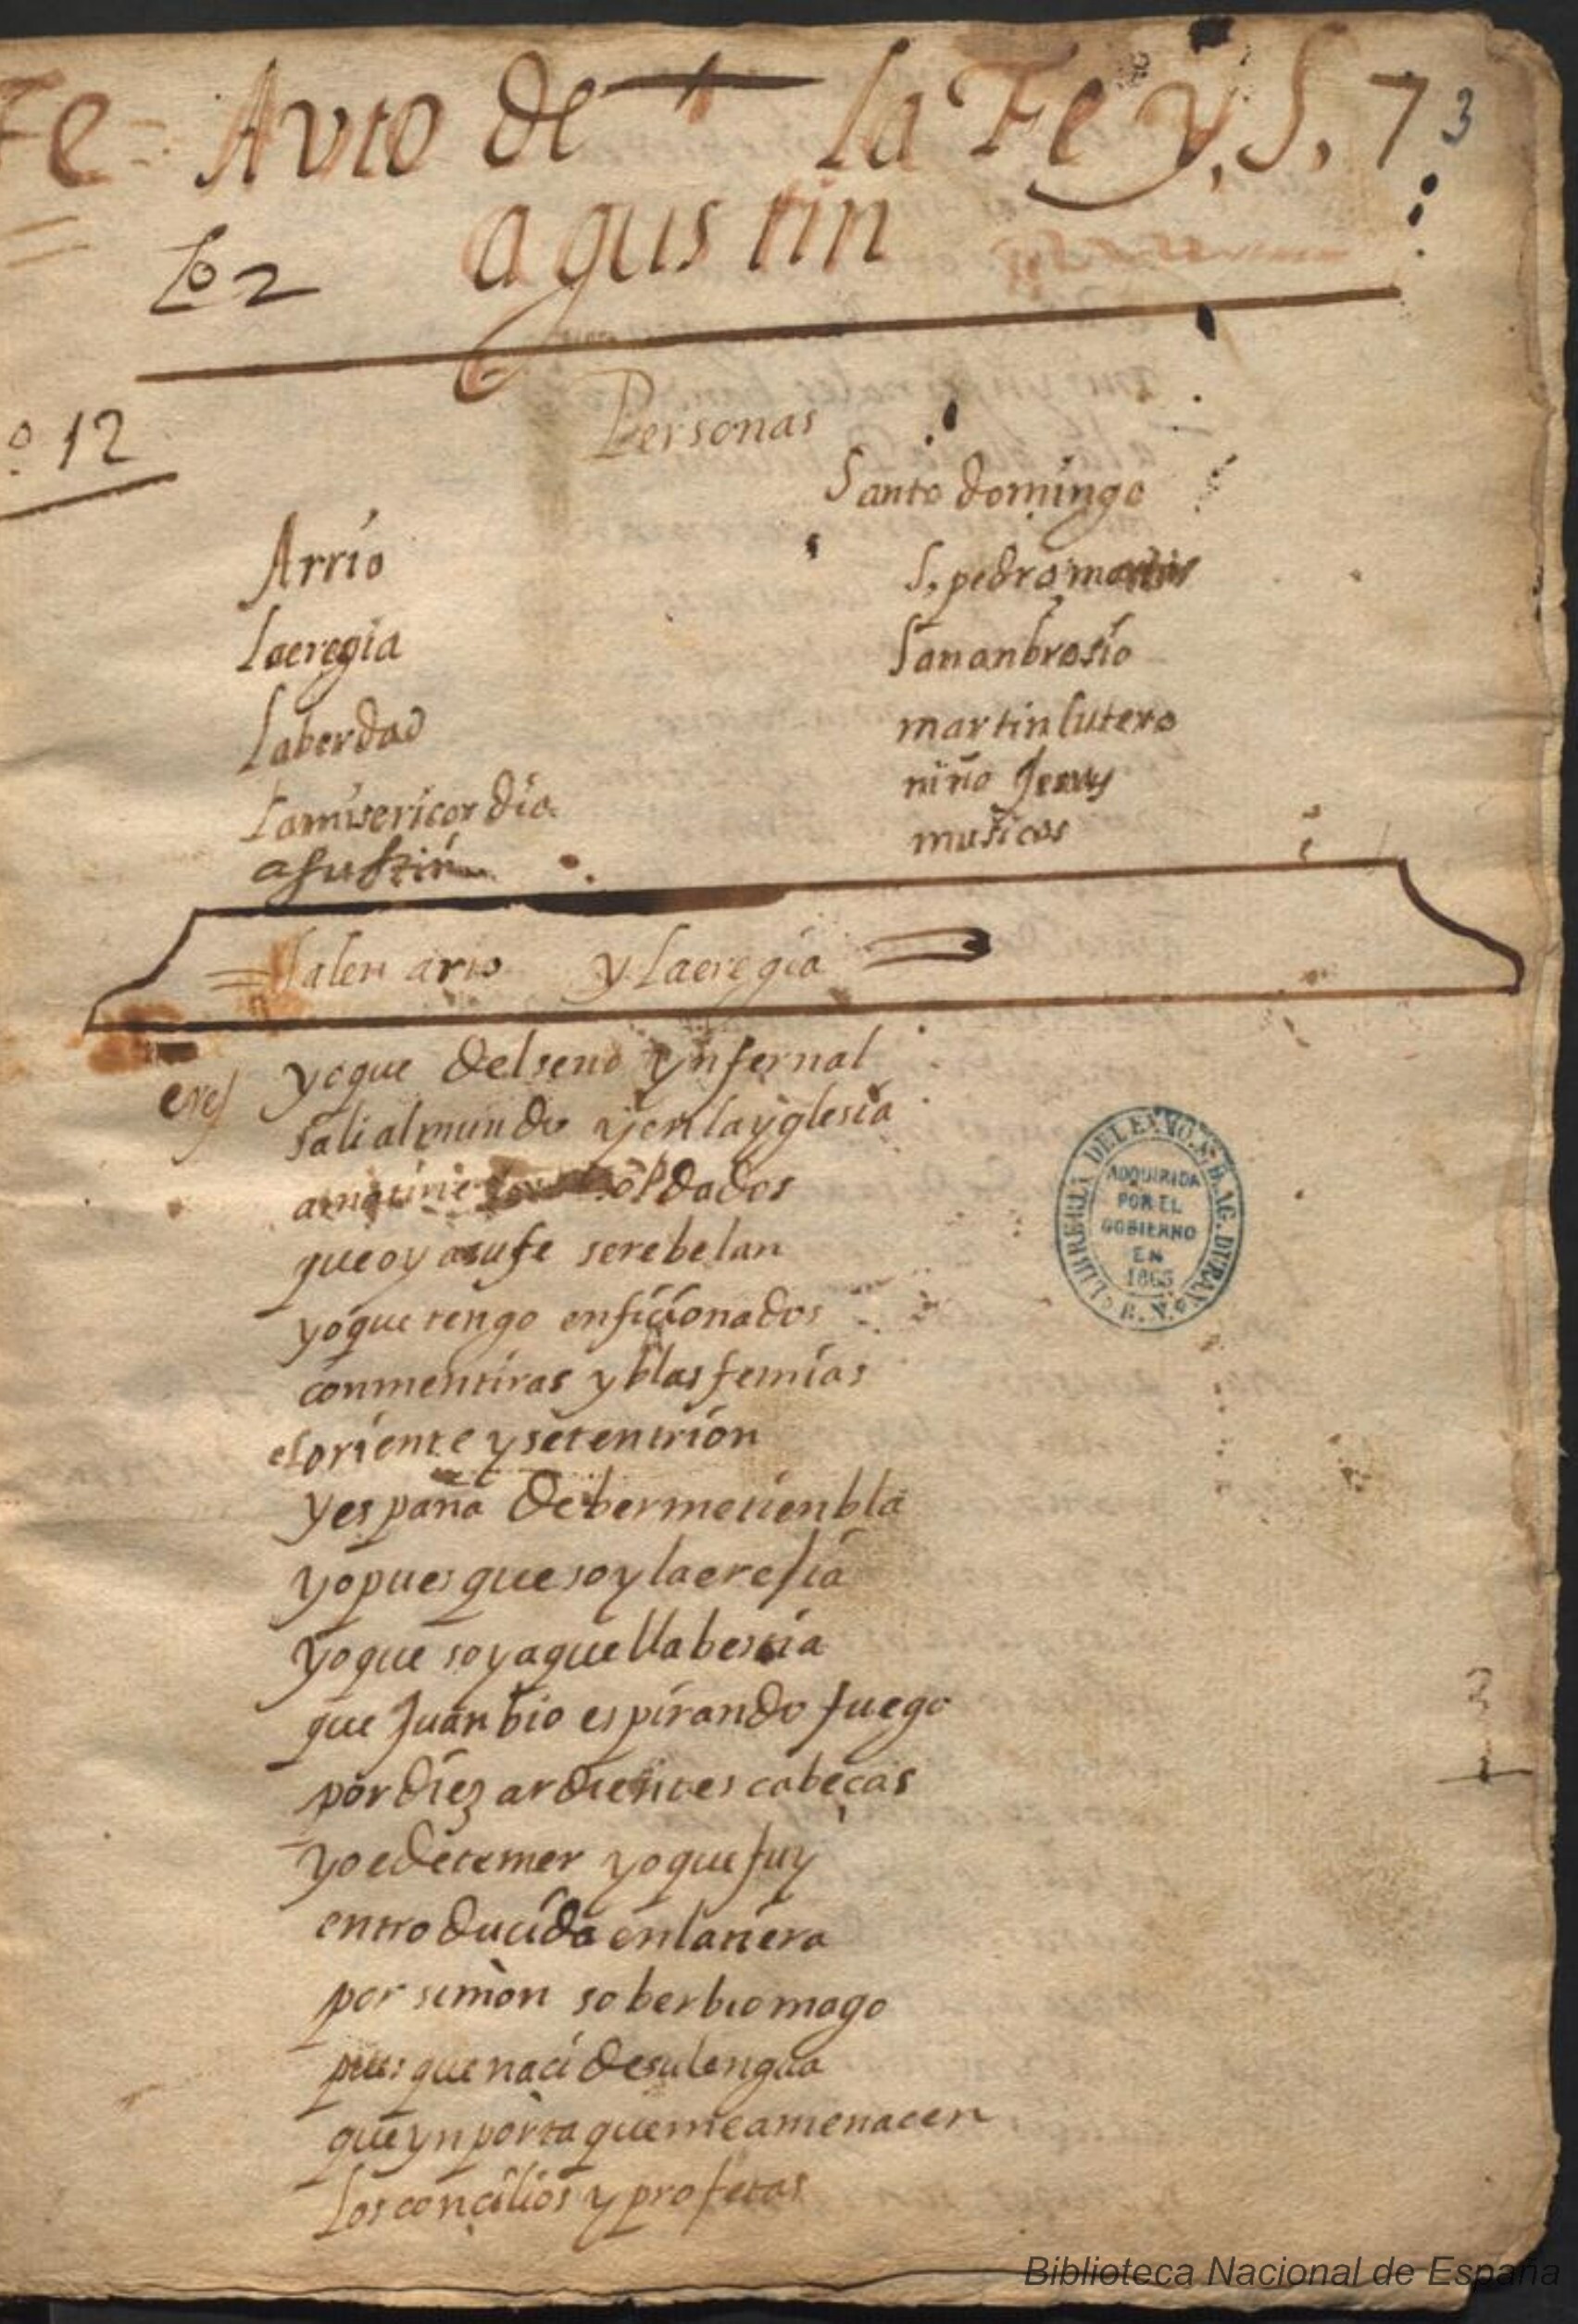 Fe = Avto de la Fe y S. 73
agustin
Lo 2
º 12
Personas
Santo domingo
Arrio
S. pedro martir
Laeregia
Sananbrosio
Laberdad
martin lutero
Lamisericordia
niño Jesus
agustin
musicos
= Salen ario y Laeregia =
ere/ yo que del seno ynfernal
sali al mundo y en la yglesia
soldados
que oy asufe serebelan
yo que tengo enficionados
con mentiras y blasfemias
el oriente y setentrion
y españa debermetienbla
yo pues que soy la eresia
yo que soy aquella bestia
que Juan bio espirando fuego
por diez ardientes cabeças
yo e de temer yo que fuy
entroducida en la
por simon soberbio mago
pues que naci de su lengua
que ynporta que me amenacen
Los concilios y profetas
LIBRERIA DEL EXMO. S. D. AG. DURAN
B. N.
ADQUIRIDA
POR EL
GOBIERNO
EN
1863
Biblioteca Nacional de España